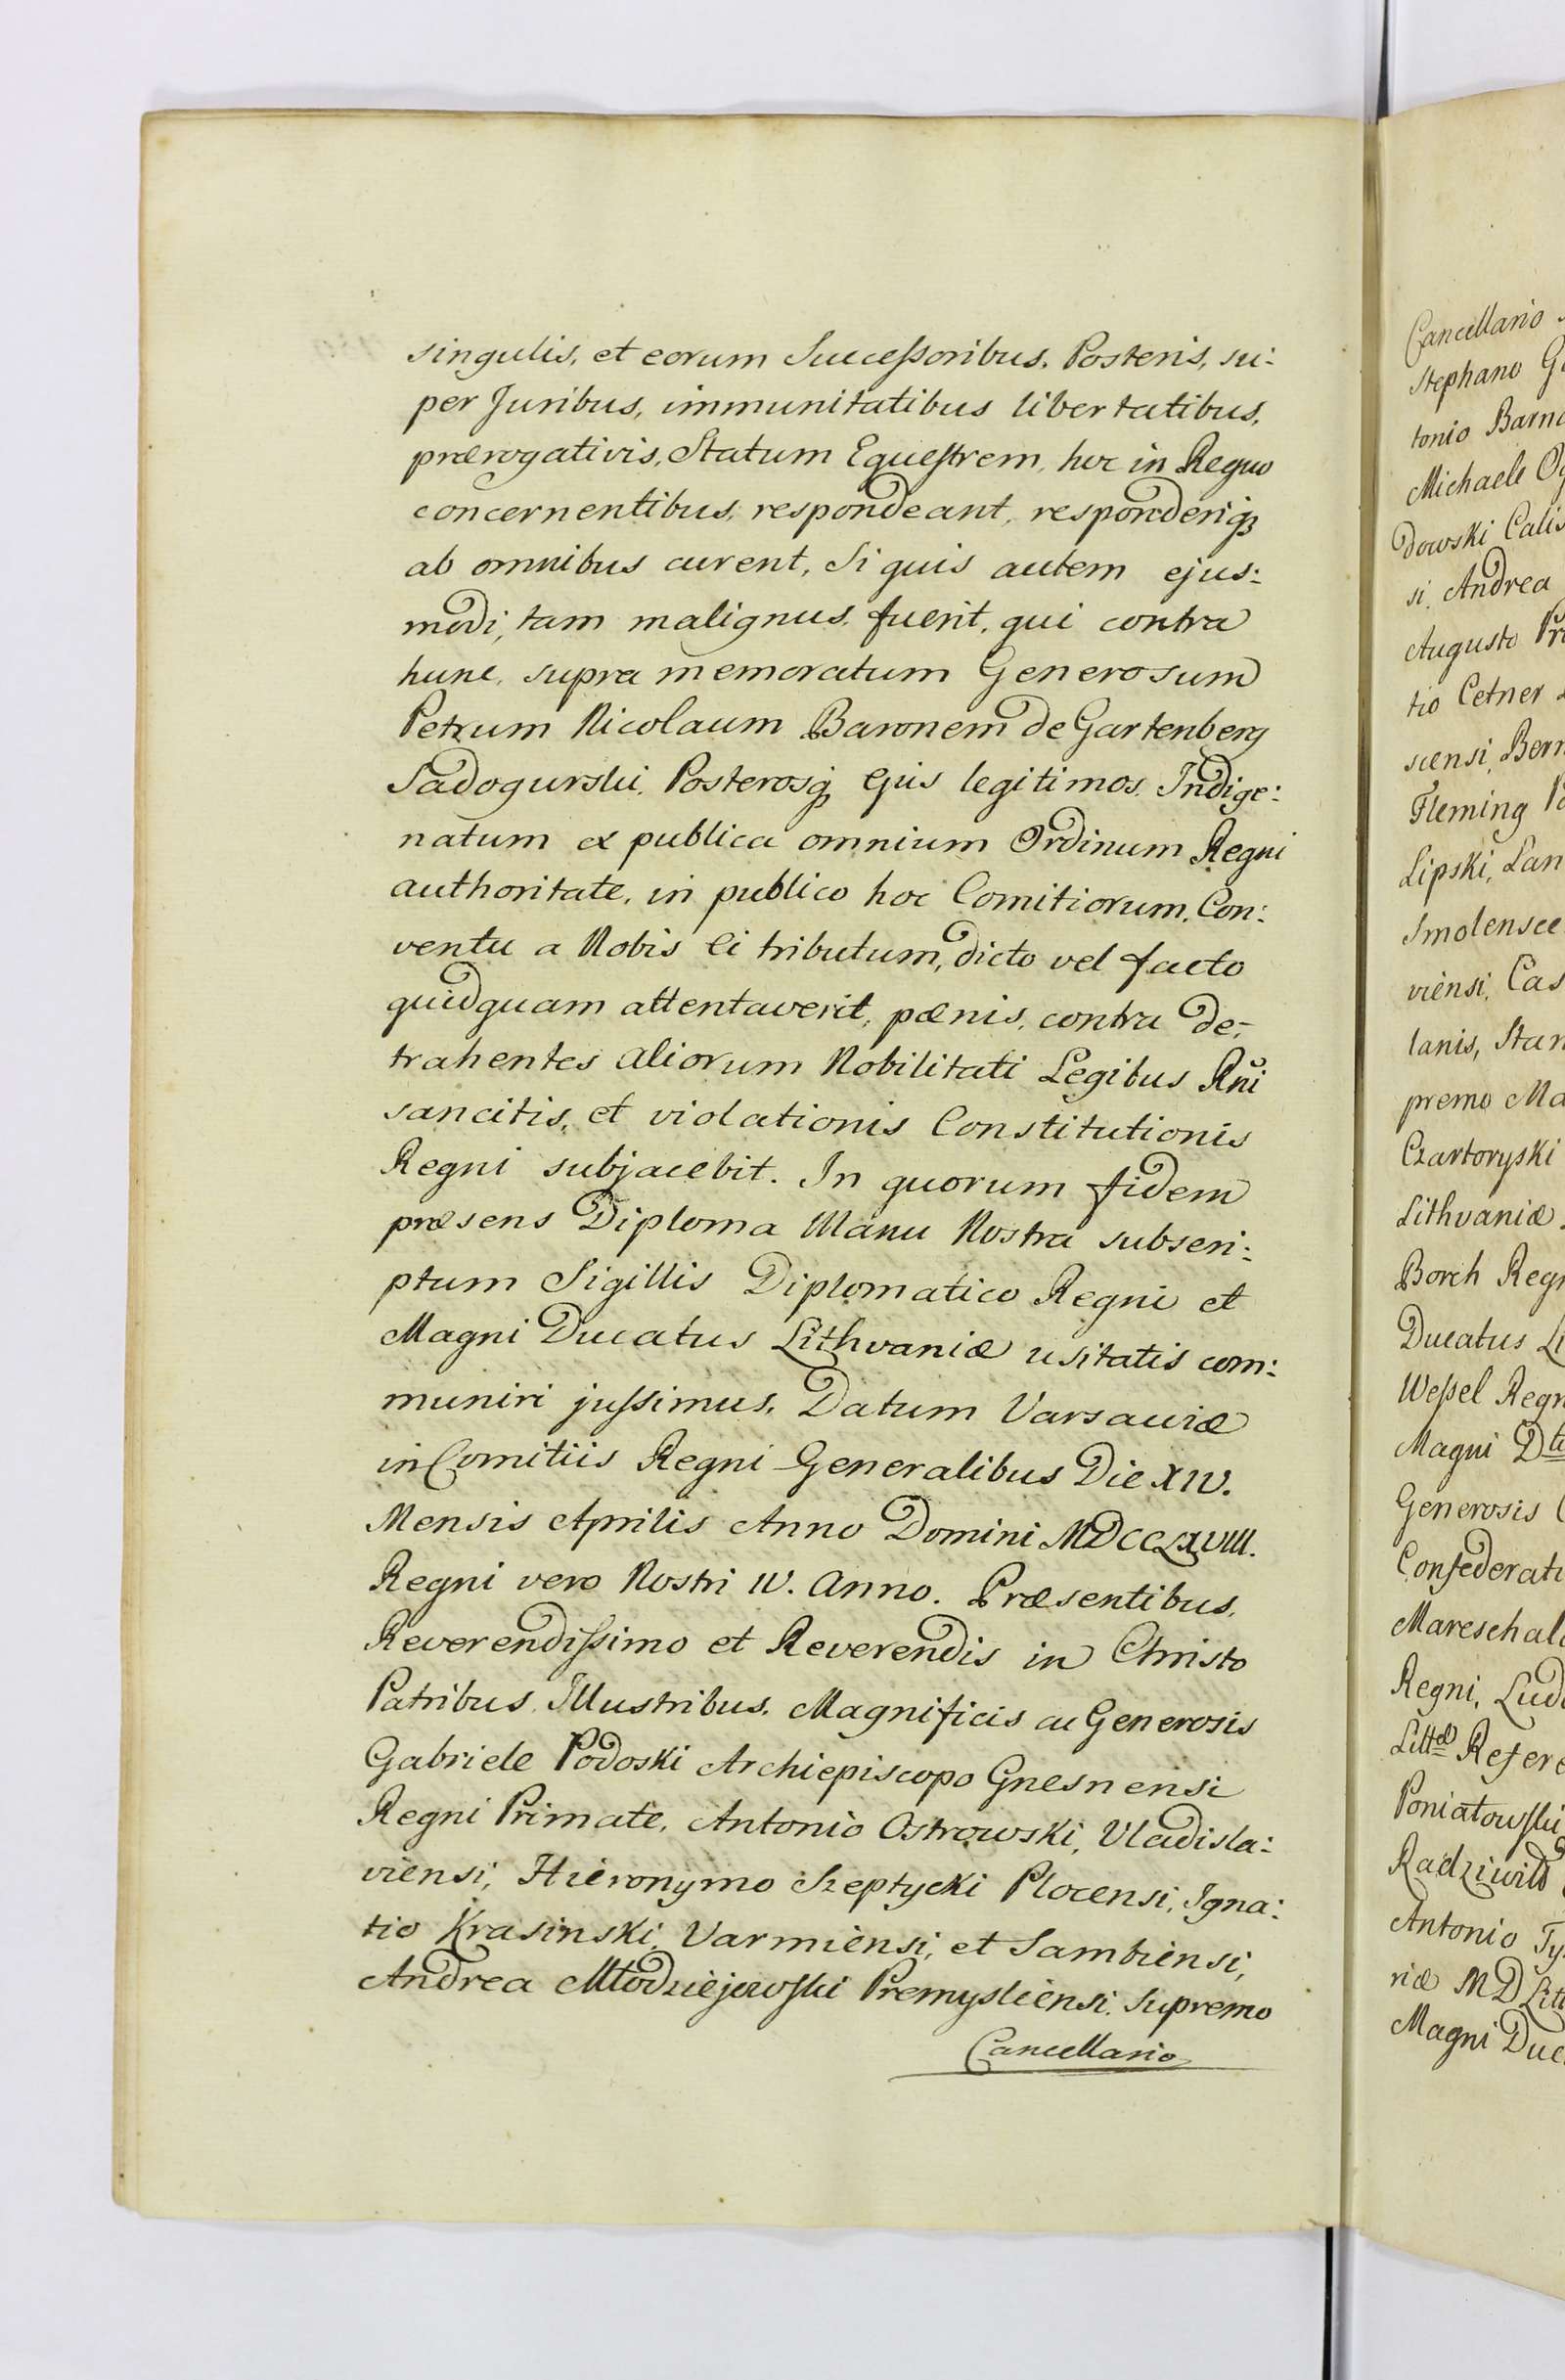 singulis, et eorum Successoribus, Posteris, su-
per Juribus, immunitatibus libertatibus,
prærogativis, Statum Equestrem, hoc in Regno
concernentibus, respondeant, responderiq
ab omnibus curent, Si quis autem ejus-
modi, tam malignus, fuerit, qui contra
hunc, supra memoratum Generosum
Petrum Nicolaum Baronem de Gartenberg
Sadogurski, Posterosq ejus legitimos, Indige-
natum ex publica omnium Ordinum Regni
authoritate, in publico hoc Comitiorum, Con-
ventu a Nobis Ei tributum, dicto vel facto
quidquam attentaverit, pænis, contra de-
trahentes aliorum Nobilitati Legibus Rni
sancitis, et violationis Constitutionis
Regni subjacebit. In quorum fidem
præsens Diploma Manu Nostra subscri-
ptum Sigillis Diplomatico Regni et
Magni Ducatus Lithvaniæ usitatis com-
muniri jussimus, Datum Varsaviæ
in Comitiis Regni Generalibus Die XIV.
Mensis Aprilis Anno Domini MDCCLXVIII.
Regni vero Nostri IV. Anno. Præsentibus,
Reverendissimo et Reverendis in Christo
Patribus, Illustribus, Magnificis ac Generosis
Gabriele Podoski Archiepiscopo Gnesnensi
Regni Primate, Antonio Ostrowski, Vladisla-
viensi, Hieronymo Szeptycki Plocensi, Igna-
tio Krasinski, Varmiensi, et Sambiensi,
Andrea Młodziejowski Premysliensi, Supremo
Cancellario
Cancellario
Stephano
tonio
Michaele
dowski
si, Andrea
Augusto
tio Cetner
sciensi,
Fleming
Lipski,
viensi,
lanis,
premo
Czartoryski
Lithvaniæ
Borch
Ducatus
Wessel
Magni
Generosis
Regni,
Poniatowski
Antonio
riæ MD
Magni